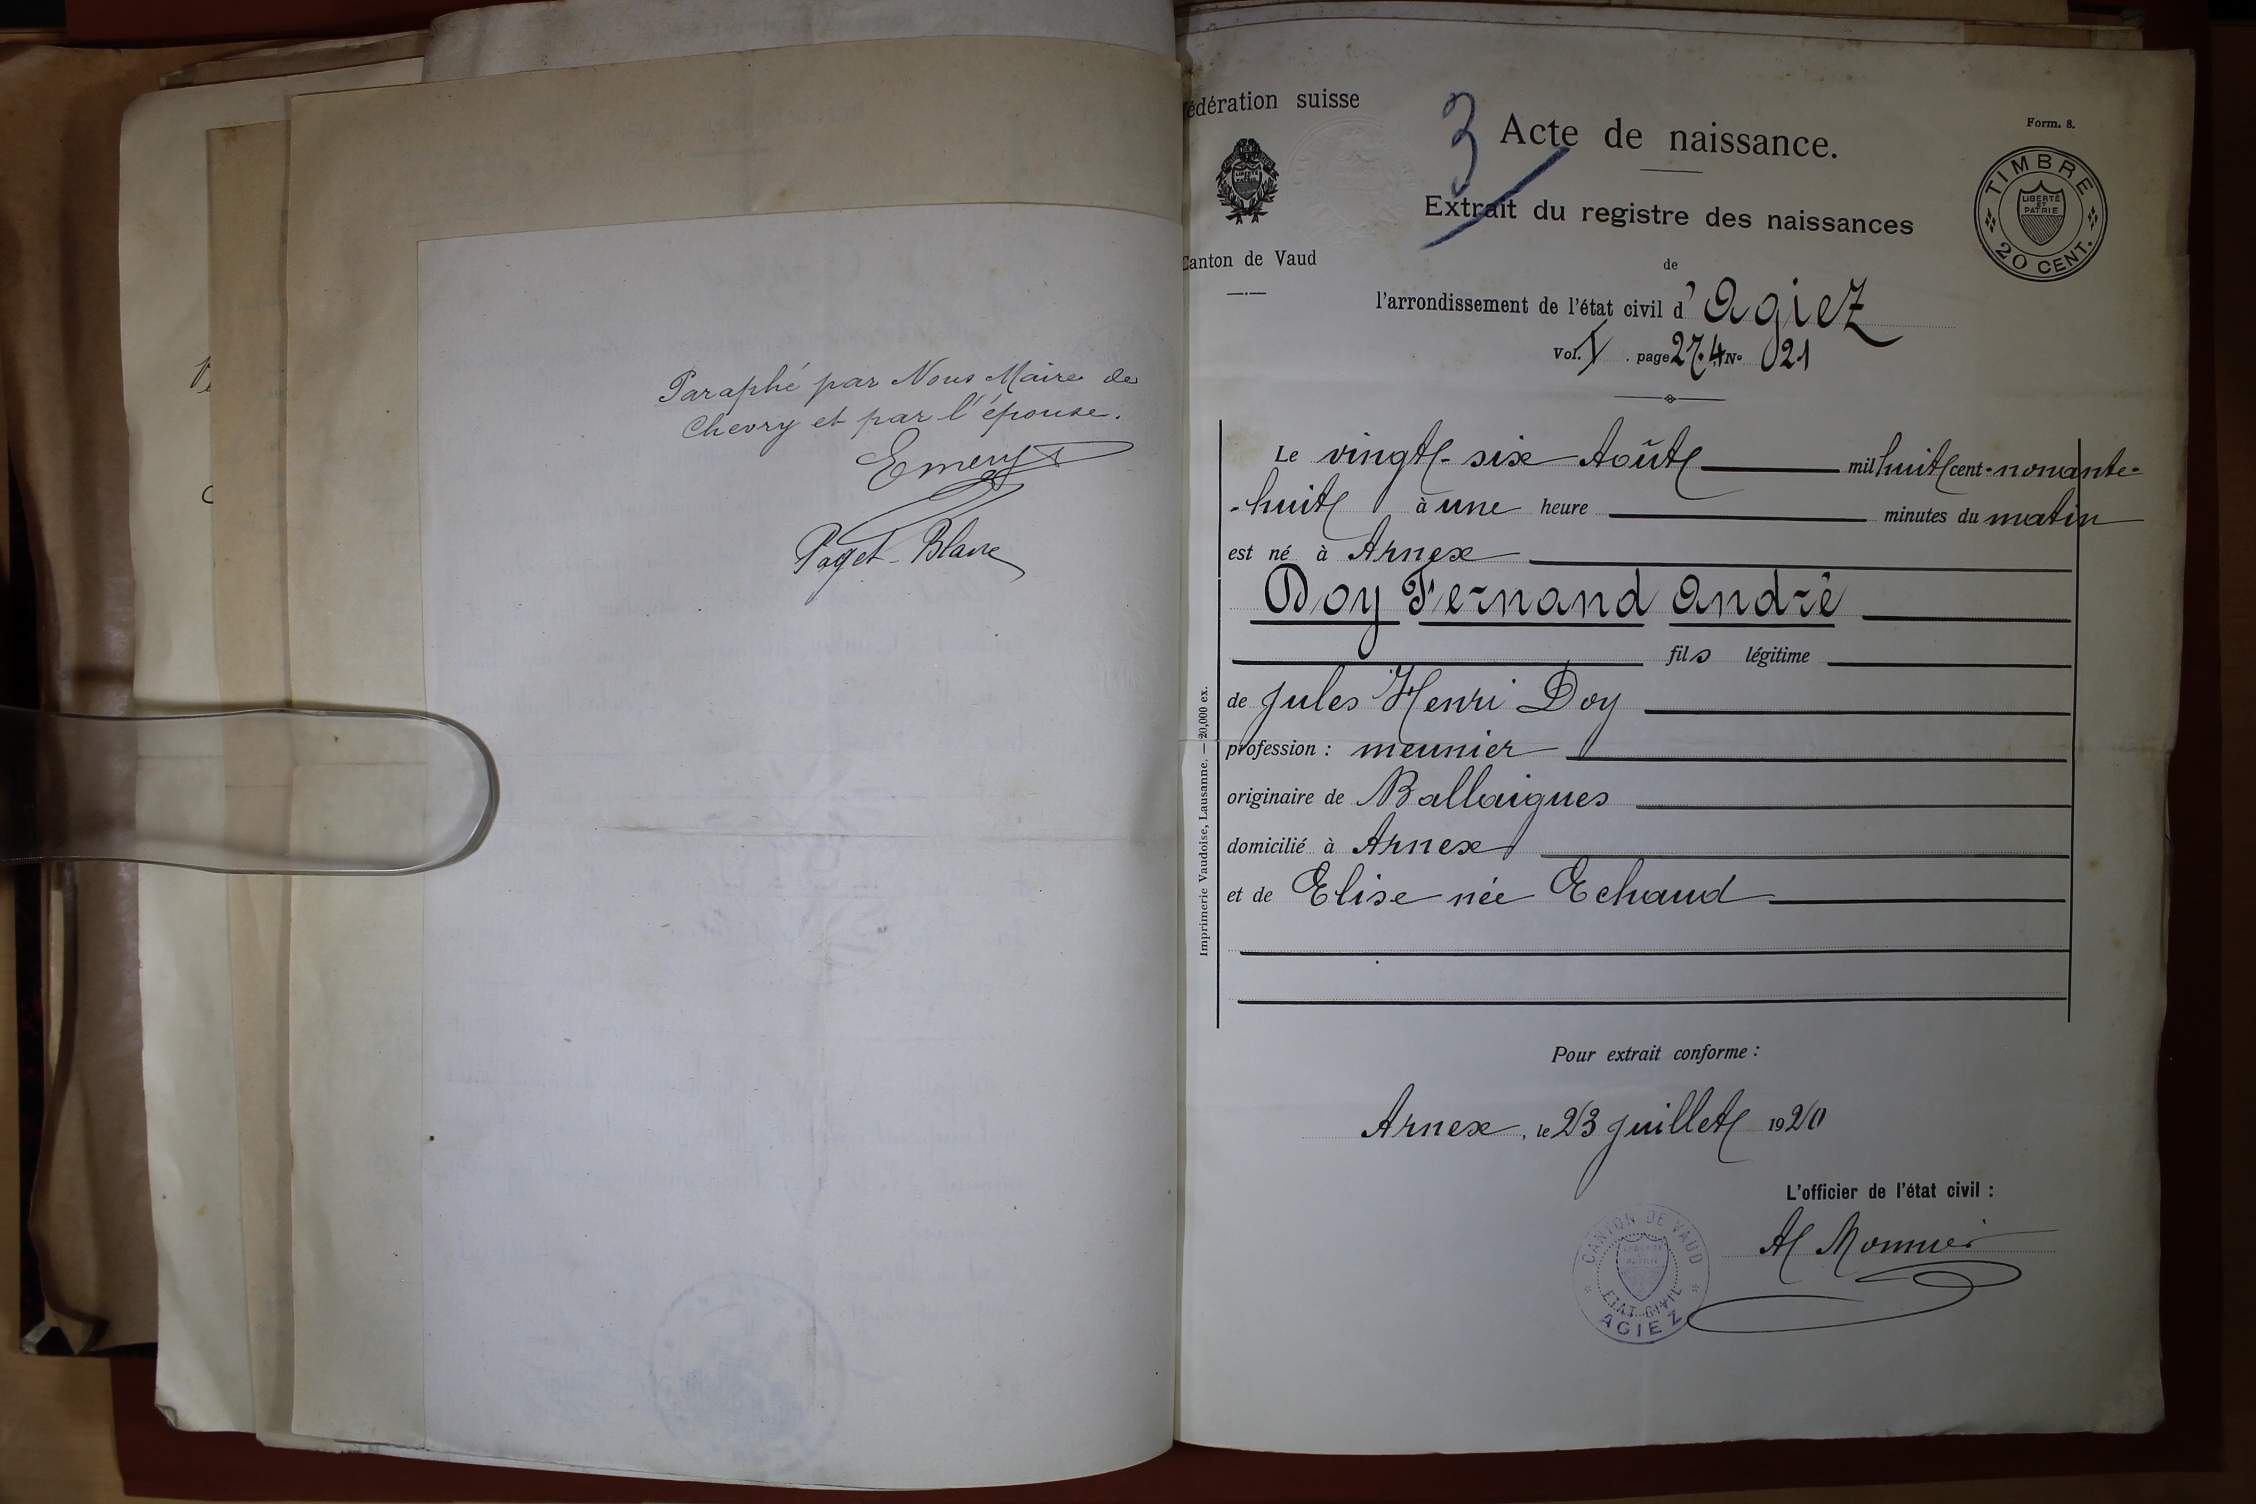 Paraphé par Nous Maire de
Chevry et par l'épouse.
Emery
Paget-Blanc
fédération suisse
LIBERTÉ ET PATRIE
Canton de Vaud
3
Form. 8.
Acte de naissance.
TIMBRE
LIBERTÉ
ET
PATRIE
20 CENT.
Extrait du registre des naissances
de
l'arrondissement de l'état civil d'Agiez
Vol. V. page 274 No 21
Le vingt-six Août mil huit cent-nonante-
-huit à une heure minutes du matin
est né à Arnex
Doy Fernand André
fils légitime
de Jules Henri Doy
profession : meunier
originaire de Ballaigues
domicilié à Arnex
et de Elise née Echaud
Imprimerie Vaudoise, Lausanne. — 20,000 ex.
Pour extrait conforme :
Arnex, le 23 juillet 1920
L'officier de l'état civil :
Al Monnier
CANTON DE VAUD
LIBERTÉ
ET
PATRIE
ETAT CIVIL
AGIEZ